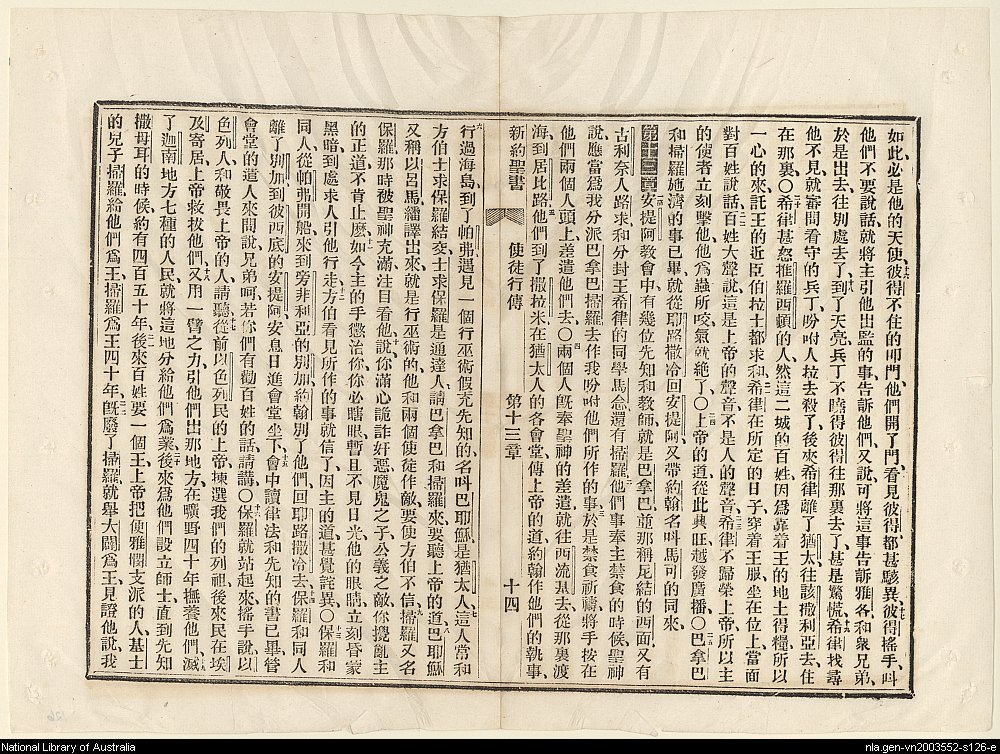 如此必是他的天使彼得不住的叩門他們開了門看見彼得都甚駭異彼得搖手呌
他們不要說話就將主引他出監的事告訴他們又說可將這事告訴雅各和衆兄弟
於是出去往別處去了到了天亮兵丁不曉得彼得往那裏去了甚是驚慌希律找尋
他不見就審問看守的兵丁吩咐人拉去殺了後來希律離了猶太往該撒利亞去住
在那裏〇希律甚惱推羅西頓的人然這二城的百姓因爲靠着王的地土得糧所以
一心的來託王的近臣伯拉士都求和希律在所定的日子穿着王服坐在位上當面
對百姓說話百姓大聲說這是上帝的聲音不是人的聲音希律不歸榮上帝所以主
的使者立刻擊他他爲蟲所咬氣就絕了〇上帝的道從此興旺越發廣播〇巴拿巴
和掃羅施濟的事已畢就從耶路撒冷回安提阿又帶約翰名呌馬可的同來
第十三章安提阿教會中有幾位先知和教師就是巴拿巴並那稱尼結的西面又有
古利奈人路求和分封王希律的同學馬念還有掃羅他們事奉主禁食的時候聖神
說應當爲我分派巴拿巴掃羅去作我吩咐他們所作的事於是禁食祈禱將手按在
他們兩個人頭上差遣他們去〇兩個人旣奉聖神的差遣就往西流基去從那裏渡
海到居比路他們到了撒拉米在猶太人的各會堂傳上帝的道約翰作他們的執事
新約聖書 使徒行傳 第十三章 十四
行過海島到了帕弗遇見一個行巫術假充先知的名呌巴耶穌是猶太人這人常和
方伯士求保羅結交士求保羅是通達人請巴拿巴和掃羅來要聽上帝的道巴耶穌
又稱以呂馬繙譯出來就是行巫術的他和兩個使徒作敵要使方伯不信掃羅又名
保羅那時被聖神充滿注目看他說你滿心詭詐奸惡魔鬼之子公義之敵你攪亂主
的正道不肯止麼如今主的手懲治你你必瞎眼暫且不見日光他的眼睛立刻昏蒙
黑暗到處求人引他行走方伯看見所作的事就信了因主的道甚覺詫異〇保羅和
同人從帕弗開船來到旁非利亞的別加約翰別了他們回耶路撒冷去保羅和同人
離了別加到彼西底的安提阿安息日進會堂坐下會中讀律法和先知的書已畢管
會堂的遣人來問說兄弟呵若你們有勸百姓的話請講〇保羅就站起來搖手說以
色列人和敬畏上帝的人請聽從前以色列民的上帝揀選我們的列祖後來民在埃
及寄居上帝救拔他們又用一臂之力引他們出那地方在曠野四十年撫養他們滅
了迦南地方七種的人民就將這地分給他們爲業後來爲他們設立師士直到先知
撒母耳的時候約有四百五十年後來百姓要一個王上帝把便雅憫支派的人基士
的兒子掃羅給他們爲王掃羅爲王四十年旣廢了掃羅就舉大闢爲王見證他說我
National Library of Australia
nla.gen-vn2003552-s126-e